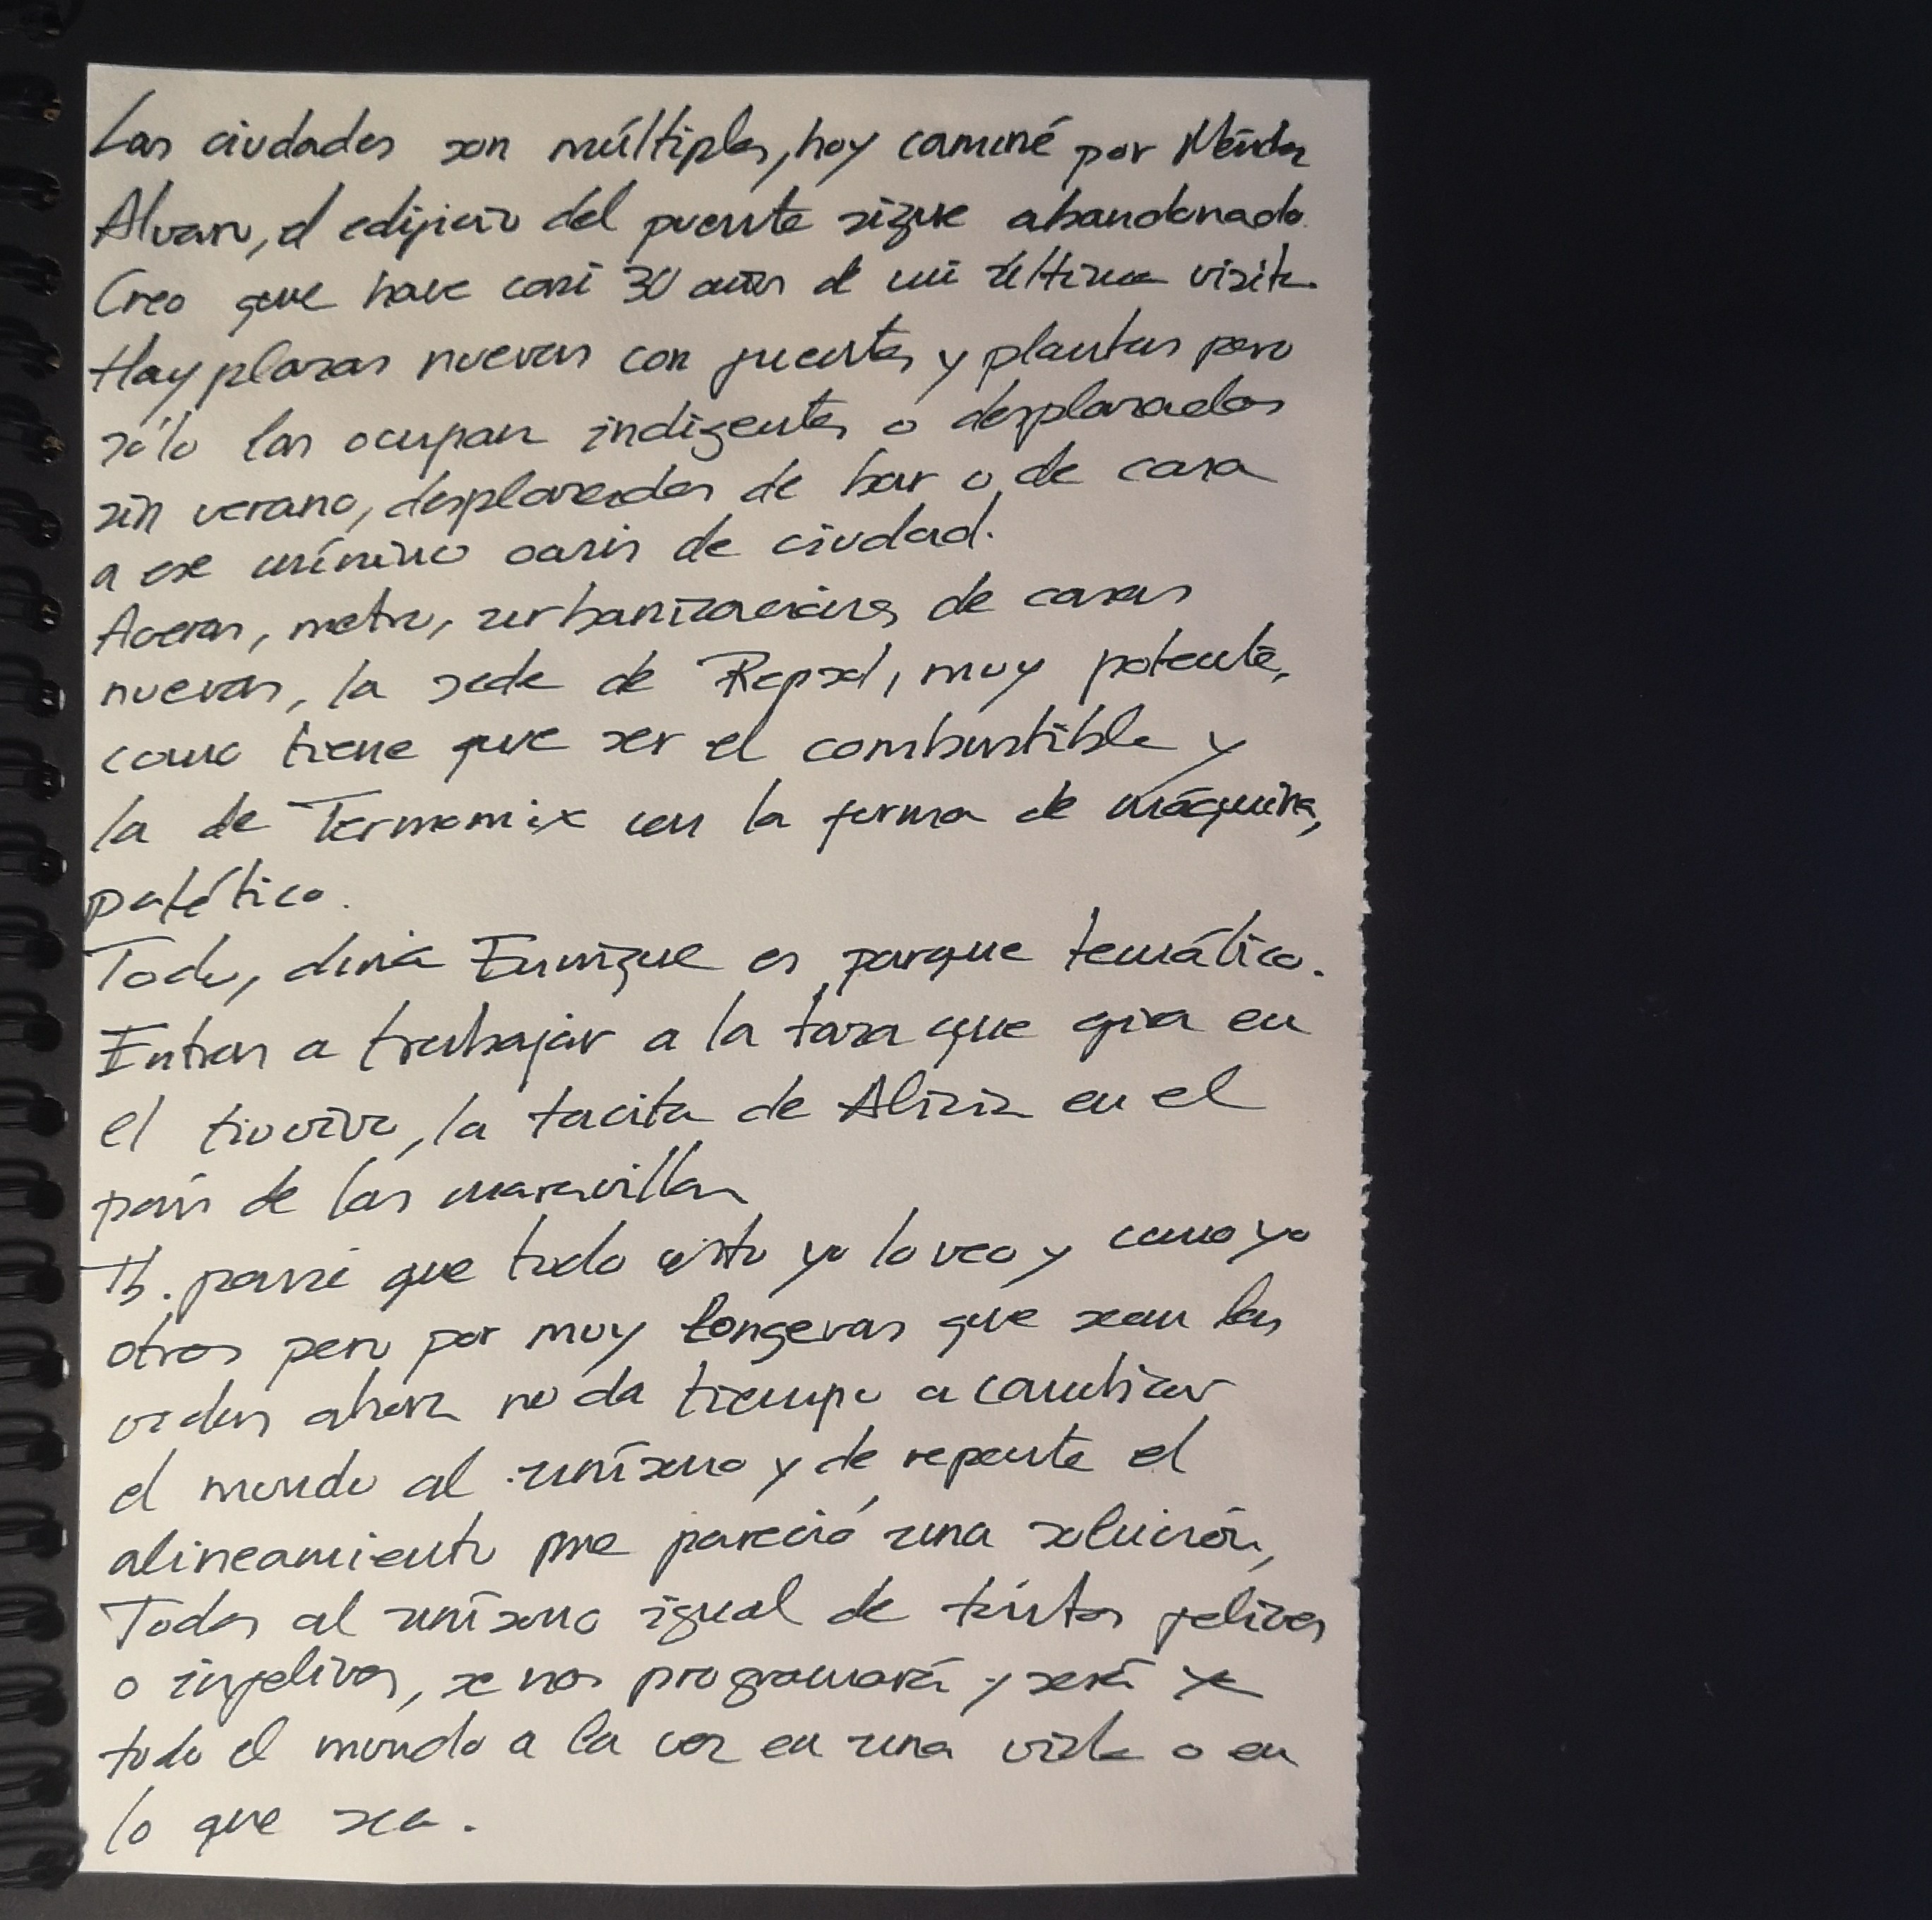 Las ciudades son múltiples, hoy caminé por Méndez
Alvaro, el edificio del puente sigue abandonado.
Creo que hace casi 30 años de mi última visita.
Hay plazas nuevas con fuentes y plantas pero
sólo las ocupan indigentes o desplazados
sin verano, desplazados de bar o de casa
a ese mínimo oasis de ciudad.
Aceras, metro, urbanizaciones de casas
nuevas, la sede de Repsol, muy potente,
como tiene que ser el combustible y
la de Termomix con la forma de máquina,
patético.
Todo, diría Enrique es parque temático.
Entras a trabajar a la taza que gira en
el tiovivo, la tacita de Alicia en el
país de las maravillas
Tb. pensé que todo esto yo lo veo y como yo
otros pero por muy longevas que sean las
vidas ahora no da tiempo a cambiar
el mundo al unísono y de repente el
alineamiento me pareció una solución,
Todos al unísono igual de tontos felices
o infelices, se nos programará y será
todo el mundo a la vez en una vida o en
lo que sea.